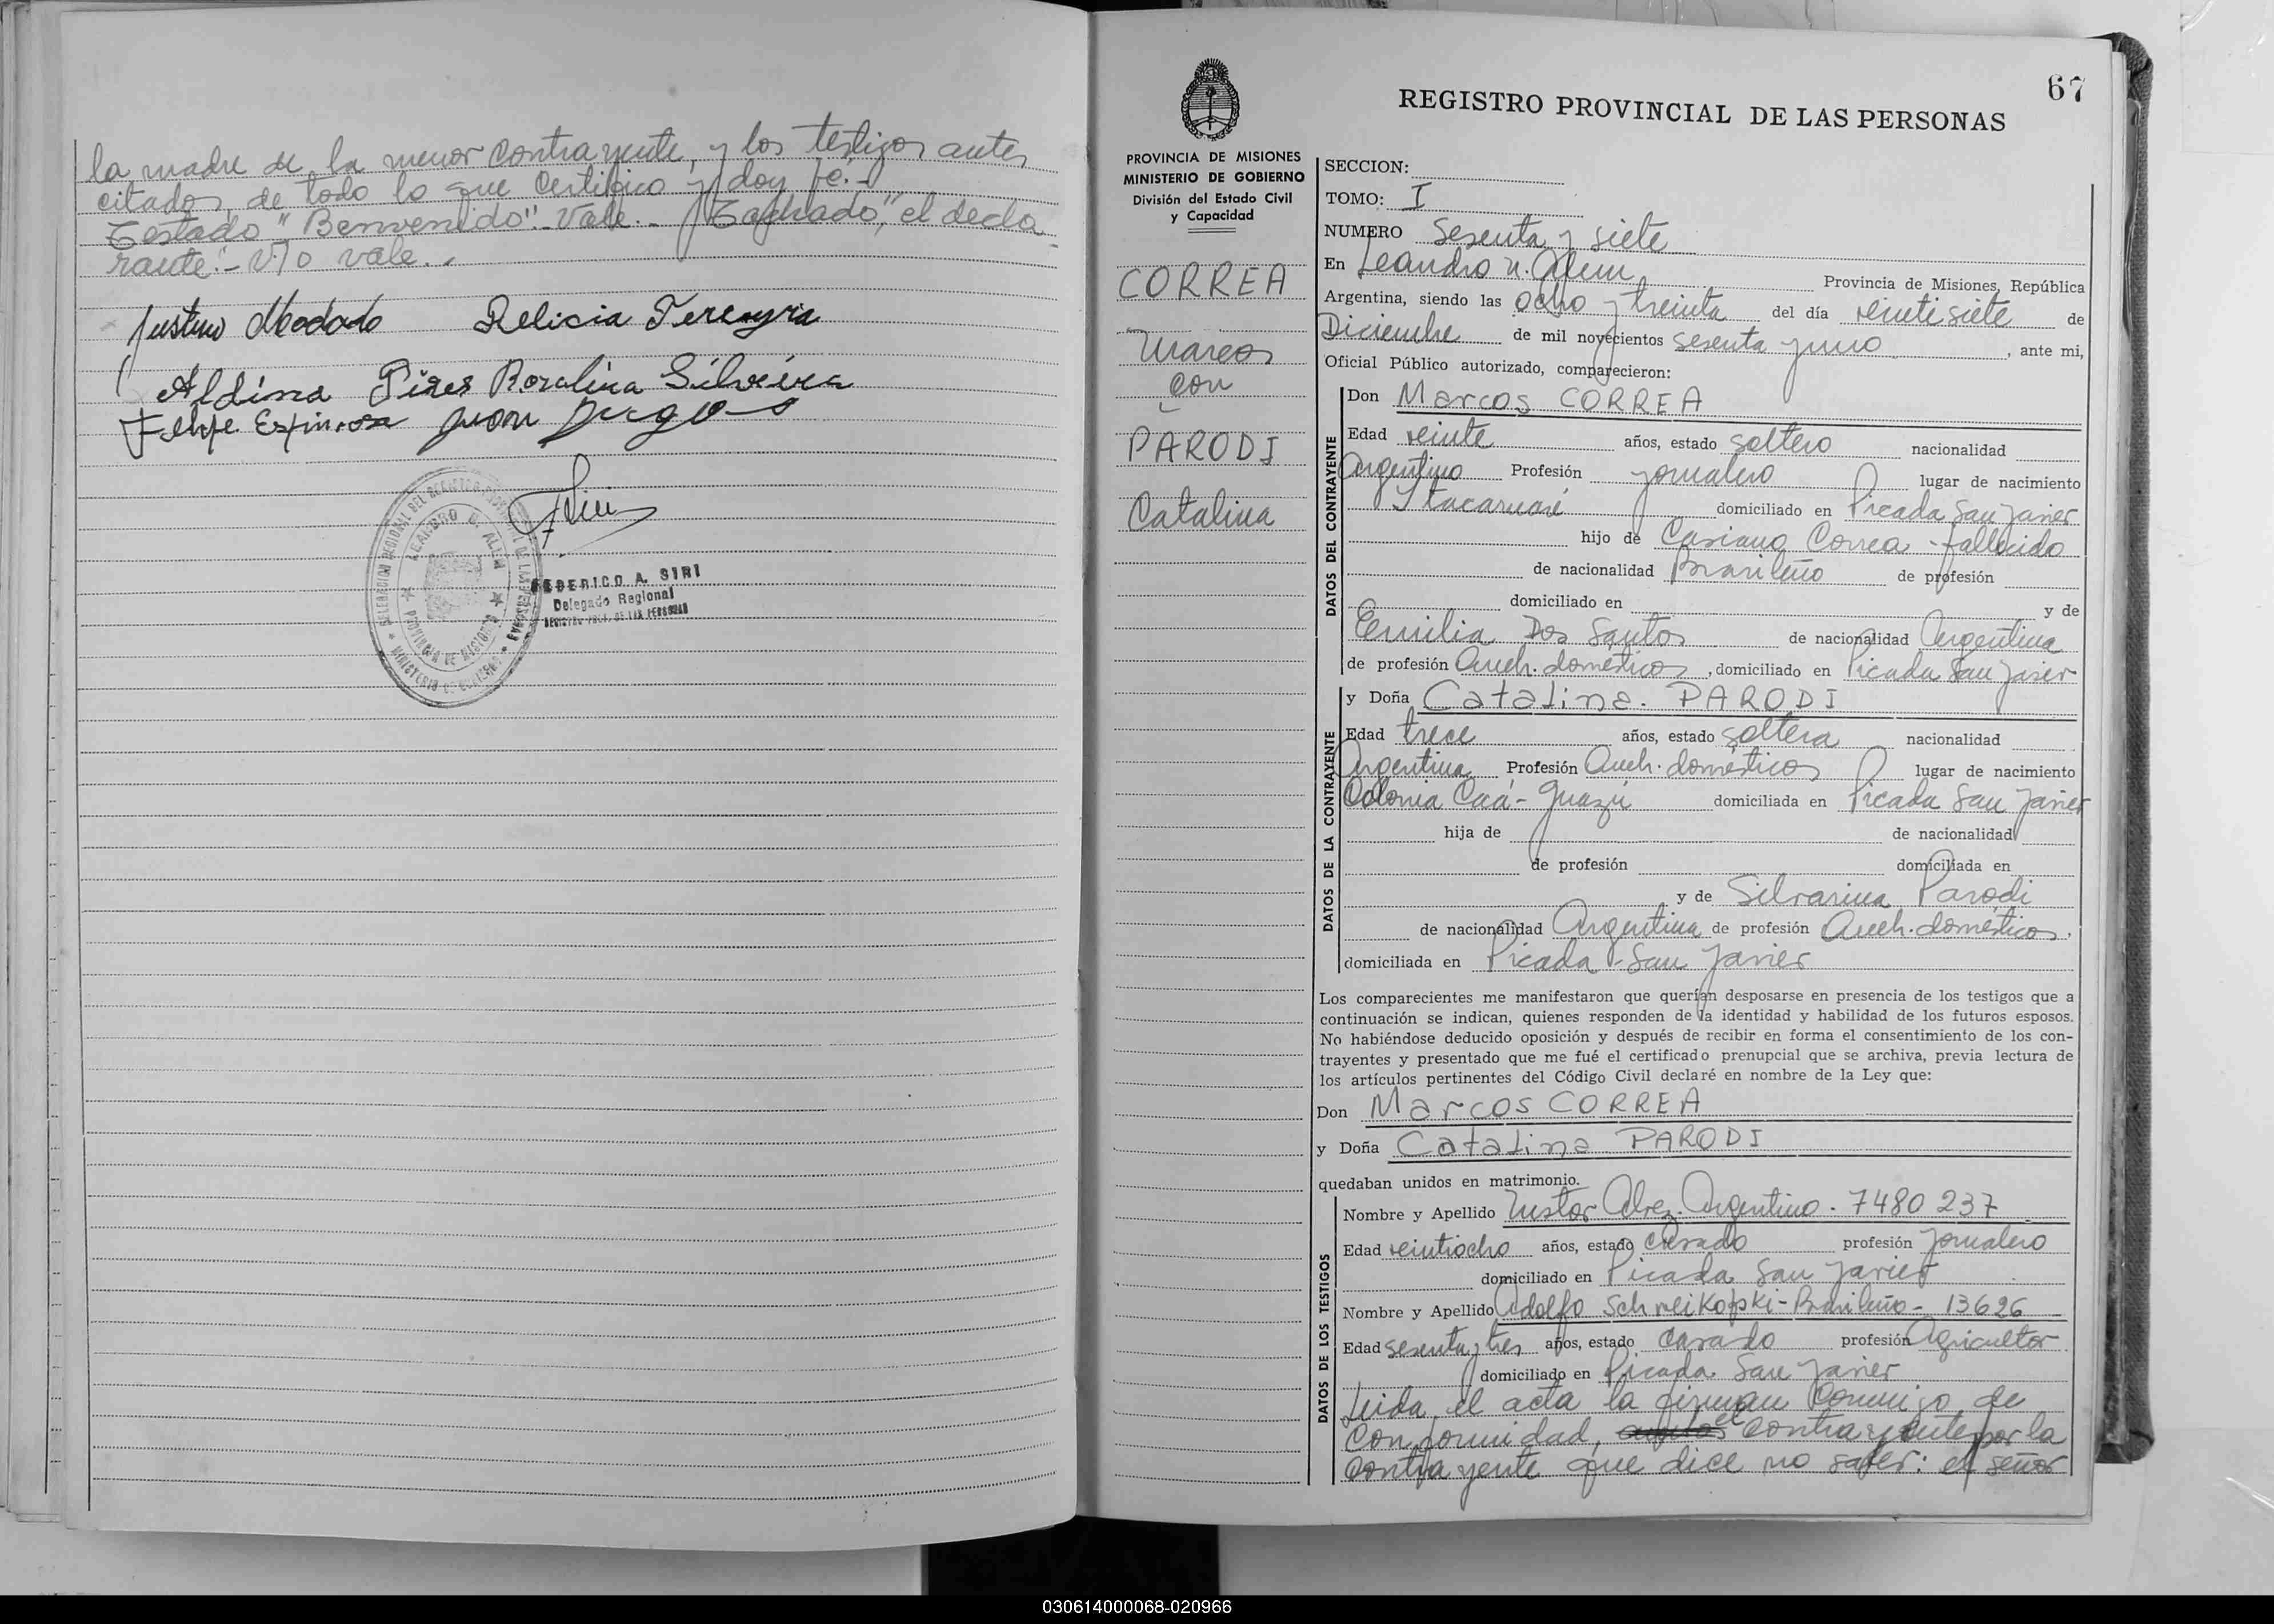 la madre de la menor contrayente, y los testigos antes
citados, de todo lo que certifico y doy fé.-
Testado "Benvenido" Vale.- Tachado, "el decla
rante".- No vale.-
Justino Relicia Fereayra
Aldina Pires Rozalina Silveira
Felipe Espinosa Juan
DELEGACION REGIONAL DEL REGISTRO PROVINCIAL DE LAS PERSONAS
LEANDRO N. ALEM
PROVINCIA DE MISIONES
MINISTERIO DE GOBIERNO
FEDERICO A. SIRI
Delegado Regional
REGISTRO PROV. DE LAS PERSONAS
67
REGISTRO PROVINCIAL DE LAS PERSONAS
PROVINCIA DE MISIONES
MINISTERIO DE GOBIERNO
División del Estado Civil
y Capacidad
CORREA
Marcos
con
PARODI
Catalina
SECCION:
TOMO: I
NUMERO Sesenta y siete
En Leandro N. Alem Provincia de Misiones, República
Argentina, siendo las ocho y treinta del día veintisiete de
Diciembre de mil novecientos sesenta y uno, ante mi,
Oficial Público autorizado, comparecieron:
DATOS DEL CONTRAYENTE
Don Marcos CORREA
Edad veinte años, estado soltero nacionalidad
Argentino Profesión jornalero lugar de nacimiento
Itacaruaré domiciliado en Picada San Javier
hijo de Casiano Correa - fallecido
de nacionalidad Brasileño de profesión
domiciliado en y de
Emilia Dos Santos de nacionalidad Argentina
de profesión Queh. domésticos, domiciliado en Picada San Javier
DATOS DE LA CONTRAYENTE
y Doña Catalina PARODI
Edad trece años, estado soltera nacionalidad
Argentina Profesión Queh. domésticos lugar de nacimiento
Colonia Caá-Guazú domiciliada en Picada San Javier
hija de de nacionalidad
de profesión domiciliada en
y de Silvarina Parodi
de nacionalidad Argentina de profesión Queh. domésticos,
domiciliada en Picada San Javier
Los comparecientes me manifestaron que querían desposarse en presencia de los testigos que a
continuación se indican, quienes responden de la identidad y habilidad de los futuros esposos.
No habiéndose deducido oposición y después de recibir en forma el consentimiento de los con-
trayentes y presentado que me fué el certificado prenupcial que se archiva, previa lectura de
los artículos pertinentes del Código Civil declaré en nombre de la Ley que:
Don Marcos CORREA
y Doña Catalina PARODI
quedaban unidos en matrimonio.
DATOS DE LOS TESTIGOS
Nombre y Apellido Nestor Alvez. Argentino. 7480 237
Edad veintiocho años, estado casado profesión Jornalero
domiciliado en Picada San Javier
Nombre y Apellido Adolfo Schweikofski - Brasileño - 13626
Edad sesenta y tres años, estado casado profesión Agricultor
domiciliado en Picada San Javier
Leida el acta la firman conmigo de
conformidad, el contrayente por la
contrayente que dice no saber: el señor
030614000068-020966